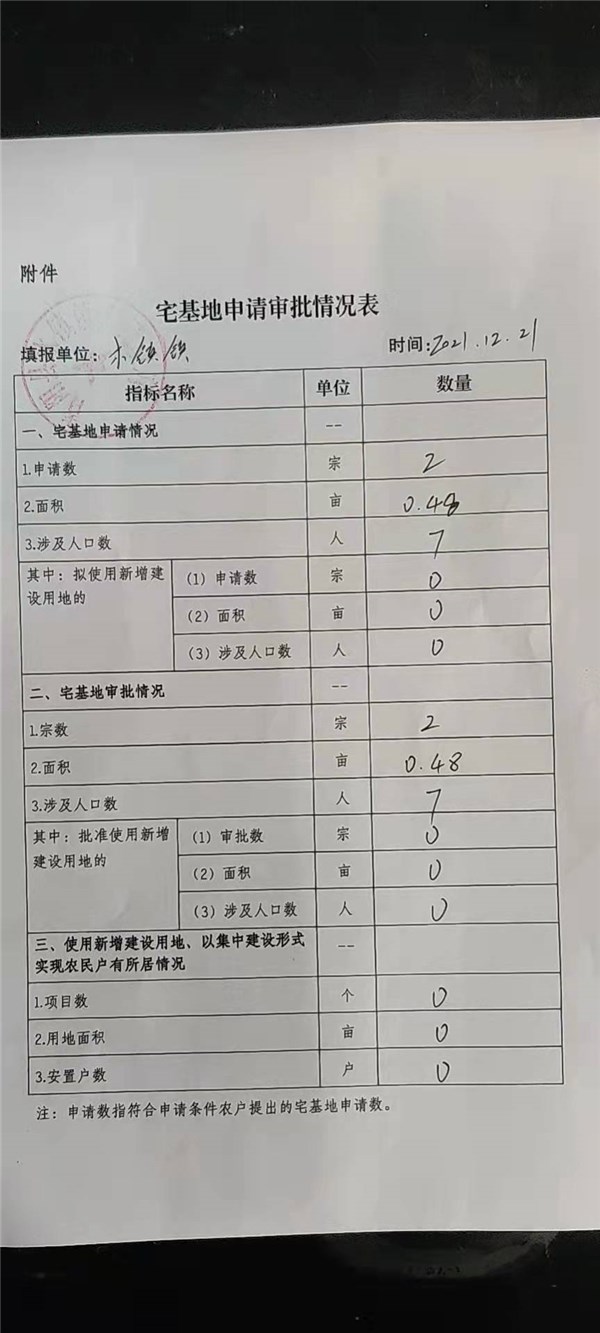 附件
宅基地申请审批情况表
填报单位：木镇镇 时间：2021.12.21
指标名称 单位 数量
一、宅基地申请情况 --
1.申请数 宗 2
2.面积 亩 0.48
3.涉及人口数 人 7
其中：拟使用新增建
设用地的
（1）申请数 宗 0
（2）面积 亩 0
（3）涉及人口数 人 0
二、宅基地审批情况 --
1.宗数 宗 2
2.面积 亩 0.48
3.涉及人口数 人 7
其中：批准使用新增
建设用地的
（1）审批数 宗 0
（2）面积 亩 0
（3）涉及人口数 人 0
三、使用新增建设用地、以集中建设形式
实现农民户有所居情况 --
1.项目数 个 0
2.用地面积 亩 0
3.安置户数 户 0
注：申请数指符合申请条件农户提出的宅基地申请数。